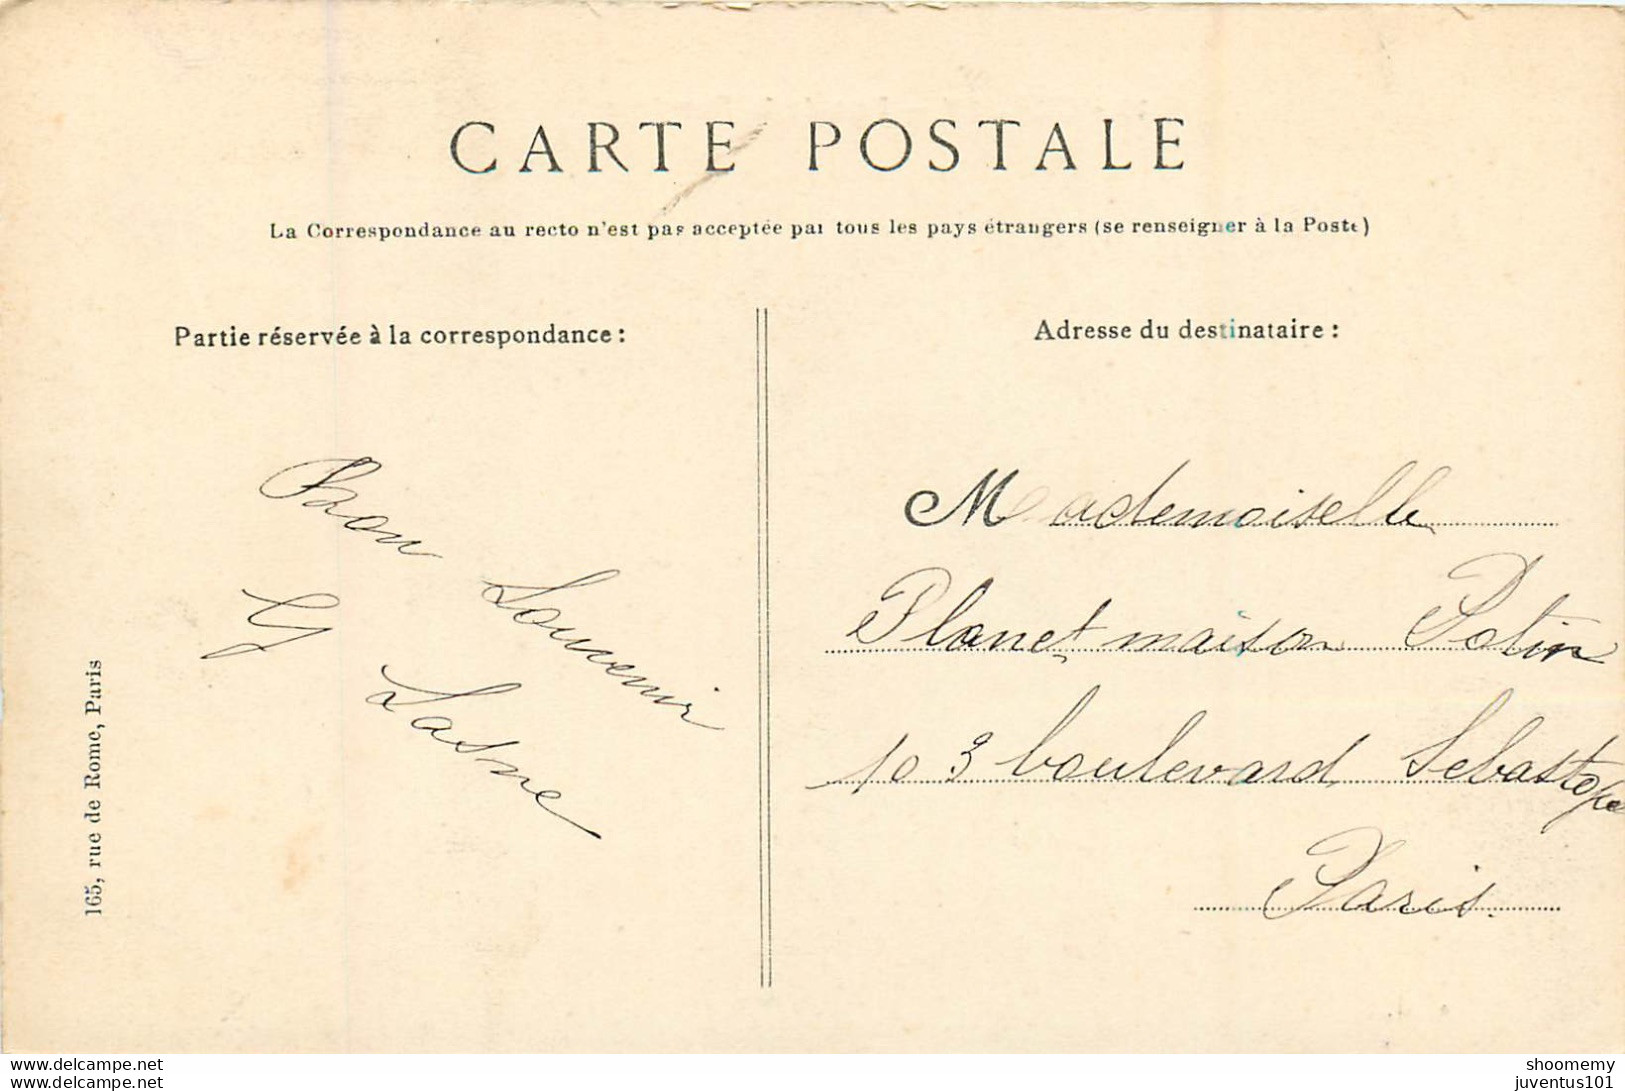 CARTE POSTALE
La Correspondance au recto n'est pas acceptée par tous les pays étrangers (se renseigner à la Poste)
Partie réservée à la correspondance :
Bon Souvenir
G Lasne
165, rue de Rome, Paris
Adresse du destinataire :
Mademoiselle
Planet maison Potin
103 boulevard Sebastopo
Paris.
www.delcampe.net
www.delcampe.net
shoomemy
juventus101